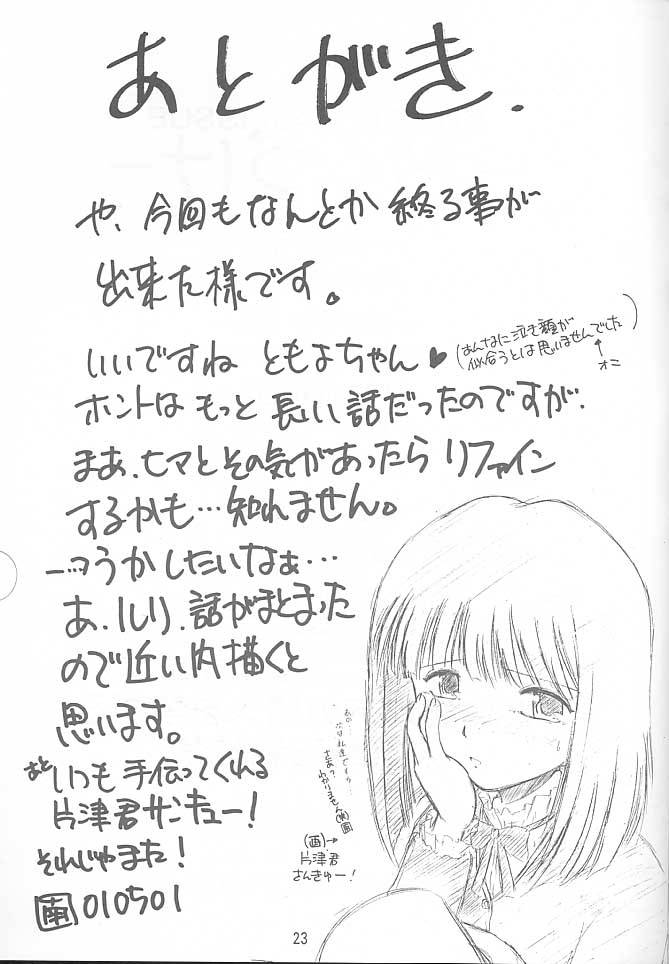 あとがき.
や、今回もなんとか終る事が
出来た様です。
いいですね ともよちゃん♥
(あんなに泣き顔が
似合うとは思いませんでした)
↑
オニ
ホントは もっと 長い話だったのですが、
まあ、ヒマとその気があったら リファイン
するかも…知れません。
うかしたいなぁ…
あ、しり、話がまとまった
ので近い内描くと
思います。
あと いつも 手伝ってくれる
片津君サンキュー!
それじゃまた!
010501
さあ?
わかりません
→
片津君
さんきゅー!
23